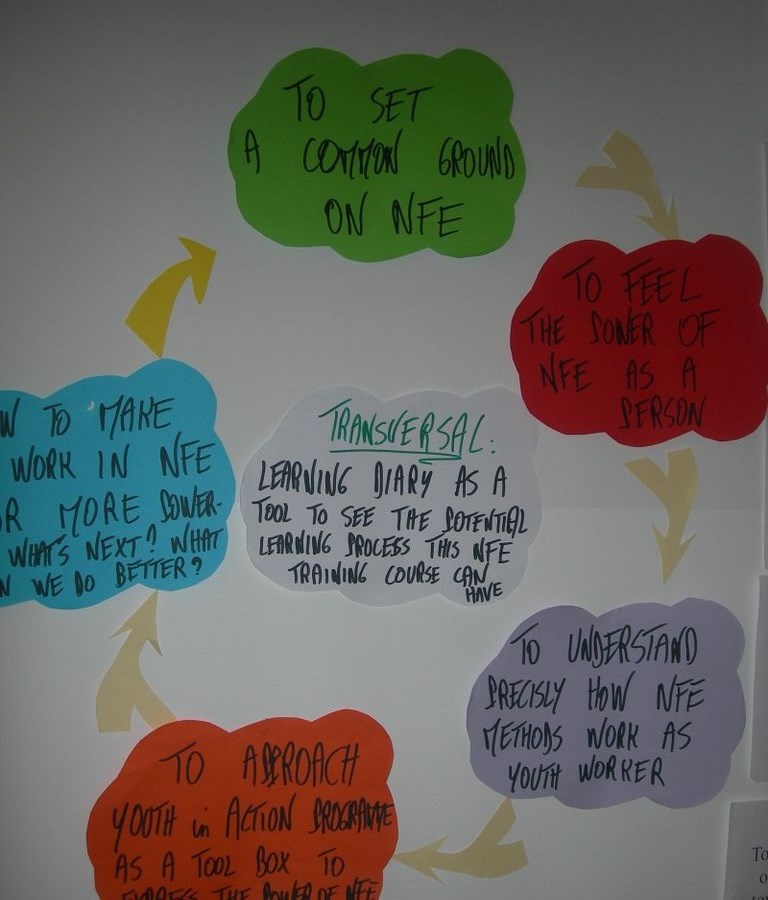 TO SET
A COMMON GROUND
ON NFE
TO FEEL
THE POWER OF
NFE AS A
PERSON
TO UNDERSTAND
PRECISLY HOW NFE
METHODS WORK AS
YOUTH WORKER
TO APPROACH
YOUTH in ACTION PROGRAMME
AS A TOOL BOX TO
EXPRESS THE POWER OF NFE
W TO MAKE
WORK IN NFE
R MORE POWER-
WHAT'S NEXT? WHAT
N WE DO BETTER?
TRANSVERSAL:
LEARNING DIARY AS A
TOOL TO SEE THE POTENTIAL
LEARNING PROCESS THIS NFE
TRAINING COURSE CAN
HAVE
To
o